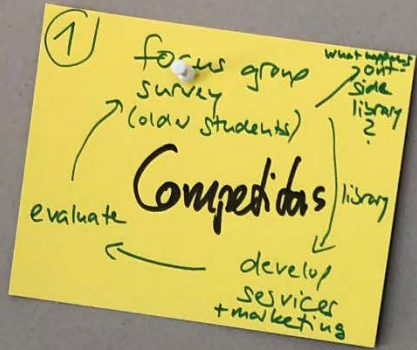 1
focus group
survey
(older students)
what happens
out-
side
library
?
Competitors
library
evaluate
develop
services
+ marketing